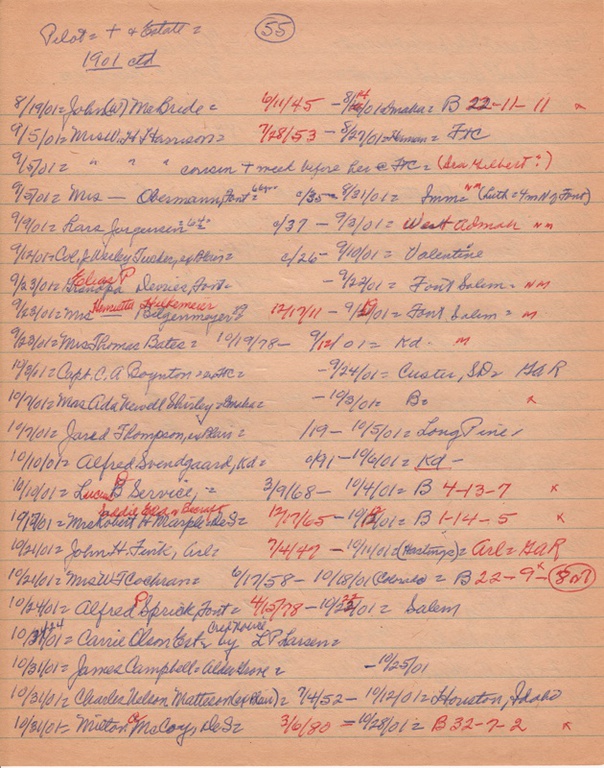 Pilot = + & Estate = 55
1901 ctd
8/19/01 = John W McBride = 6/11/45 - 8/14/01 Omaha = B 22-11-11 x
9/5/01 = Mrs W. H Harrison = 7/28/53 - 8/27/01 = Herman = FtC
9/5/01 = " " " cousin + week before her @ FtC = (Ara Gilbert?)
9/5/01 = Mrs — Obermann, Font = c/35 - 8/31/01 = Imm = NM (Luth = 4m N of Font)
9/9/01 = Lars Jorgensen = c/37 - 9/3/01 = West Admah NM
9/12/01 = Col. J. Wesley Tucker, ex Blair = c/26 - 9/10/01 = Valentine
9/23/01 = Grandpa Elias P Devrier, Font = - 9/22/01 = Font Salem = NM
9/23/01 = Mrs Henrietta Hilkemeier Bilgenmoyer = 12/17/11 - 9/19/01 = Font Salem = M
9/23/01 = Mrs Thomas Bates = 10/19/78 - 9/12/01 = Kd. M
10/3/01 = Capt. C. A Boynton = ex FtC = - 9/24/01 = Custer, SD = GAR
10/7/01 = Mrs Ada Newell Shirley = Omaha = - 10/3/01 = B = x
10/7/01 = Jared Thompson, ex Blair = /19 - 10/5/01 = Long Pine
10/10/01 = Alfred Svendgaard, Kd = c/91 - 10/6/01 = Kd -
10/10/01 = Lucien B Service, = 3/9/68 - 10/4/01 = B 4-13-7 x
10/17/01 = Mrs Robert H Marple = DeS = 12/17/65 - B 1-14-5 x
10/21/01 = John H. Fink, Arl = 7/4/47 - 10/11/01 (Hastings) = Arl = GAR
10/21/01 = Mrs W T Cochran = 6/17/58 - 10/18/01 Colorado = B 22-9-
10/24/01 = Alfred P Sprick, Font = 4/5/78 - 10/22/01 = Salem
10/24/01 = Carrie Olson Est = by L P Larsen =
10/31/01 = James Campbell = Alder Grove = - 10/25/01
10/31/01 = Charles Nelson Matteson (ex Blair) = 7/4/52 - 10/12/01 = Houston, Idaho
10/31/01 = Milton McCoy, DeS = 3/6/80 = 10/28/01 = B 32-7-2 x